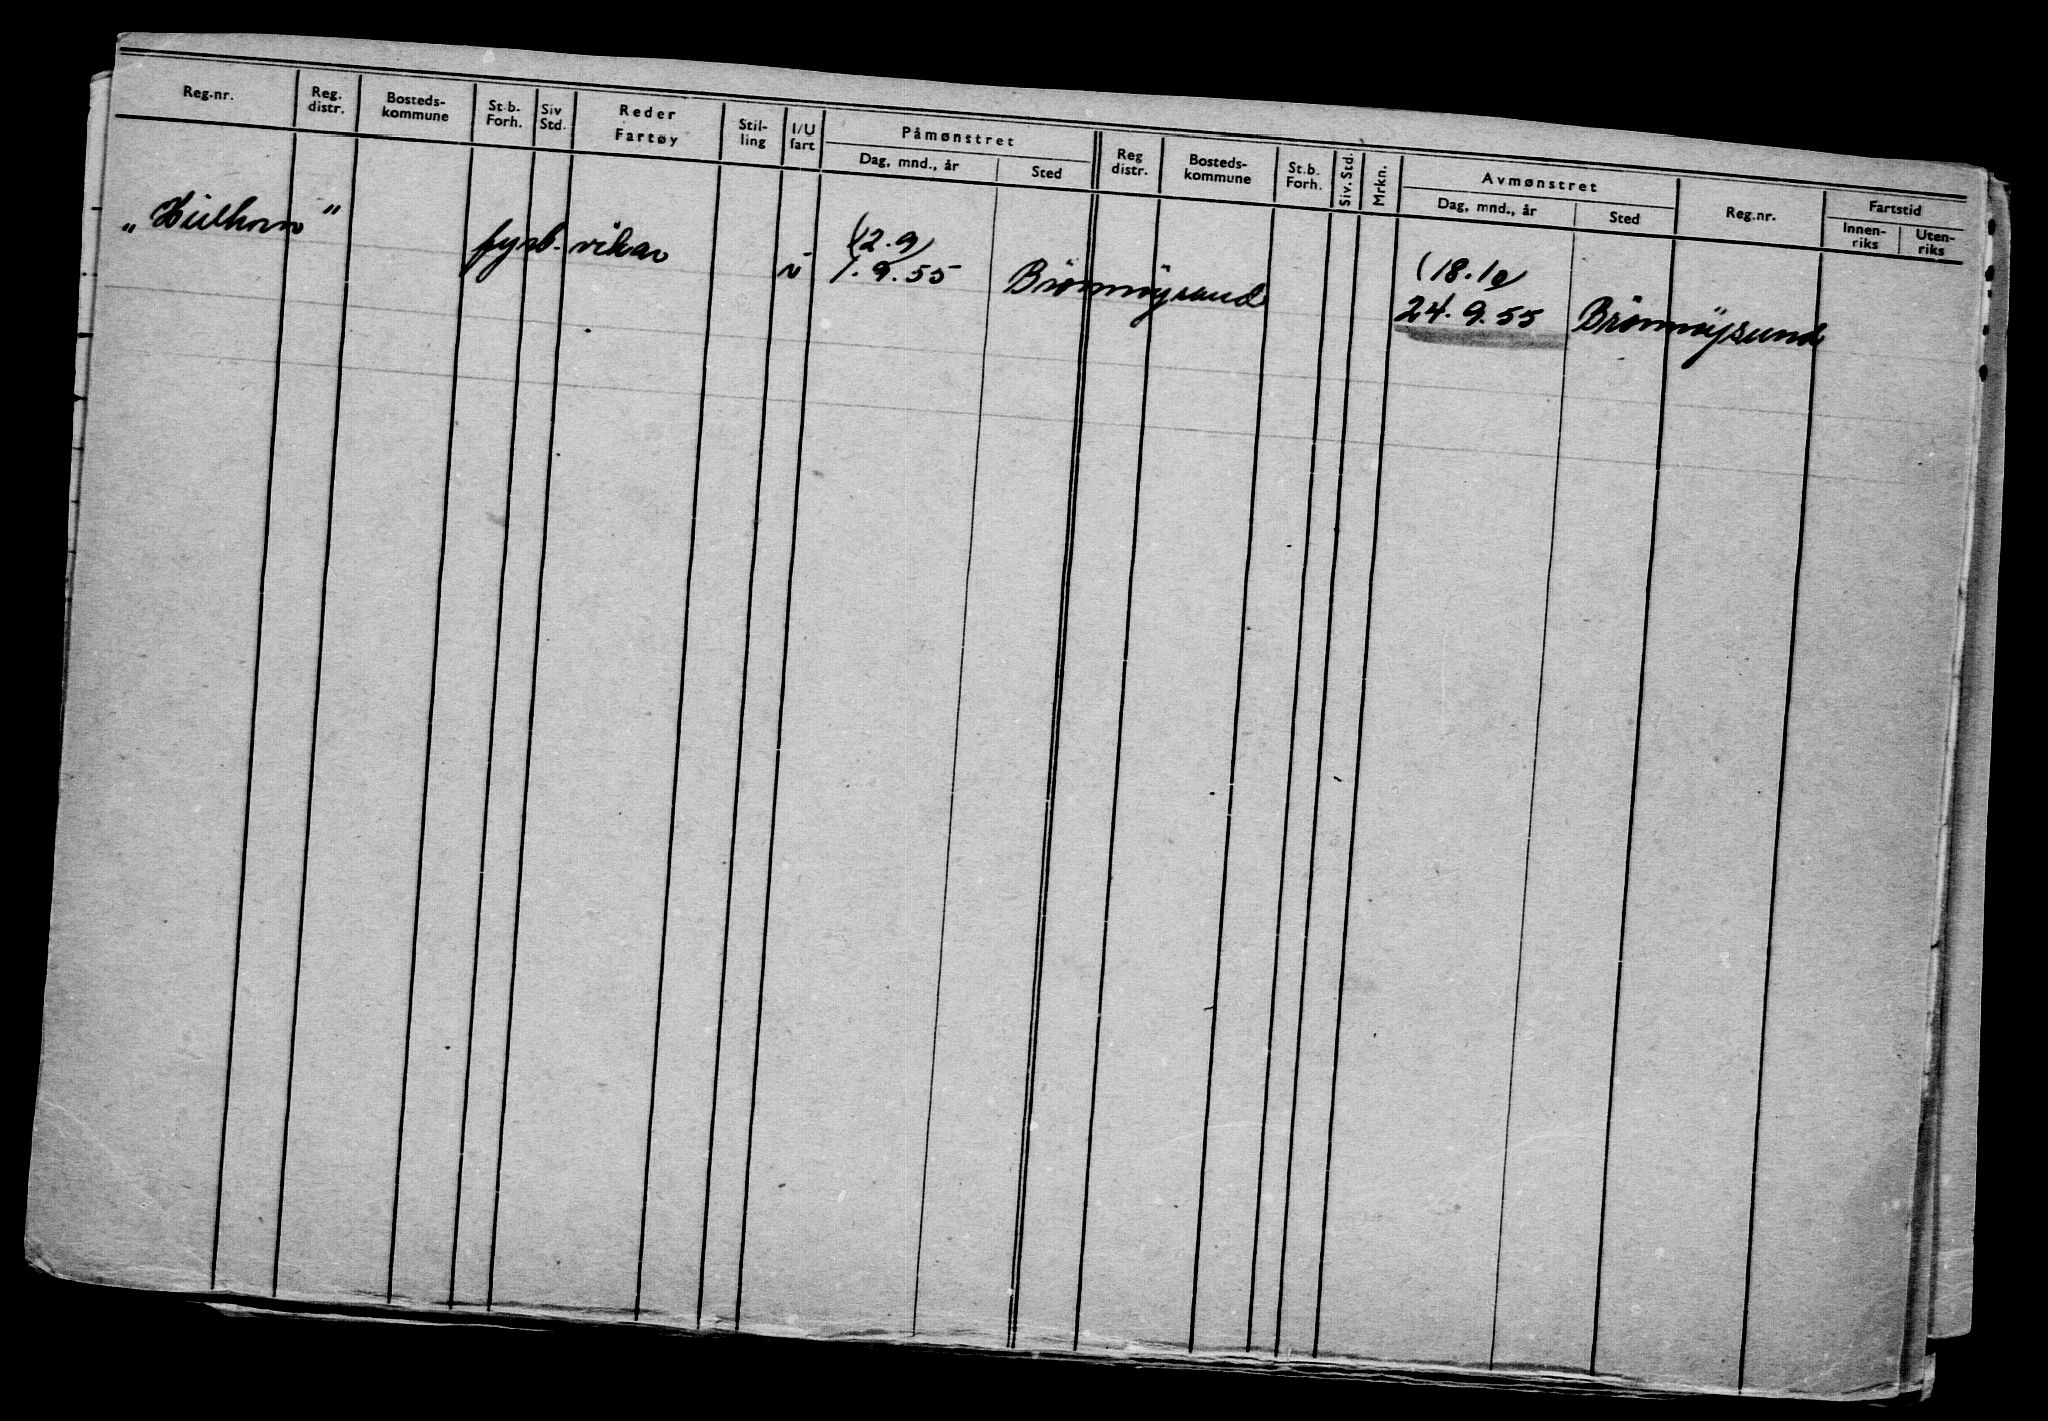 Reg.nr. Reg. distr. Bosteds-kommune St.b. Forh. Siv Std. Reder Fartøy Stil-ling I/U fart Påmønstret Dag, mnd., år Sted Reg distr. Bosteds-kommune St.b. Forh. Siv. Std. Mrkn. Avmønstret Dag, mnd., år Sted Reg.nr. Fartstid Innen-riks Uten-riks
(2.9)
(18.10)
fyrb. vikar 1.9.55 Brønnøysund 24.9.55 Brønnøysund